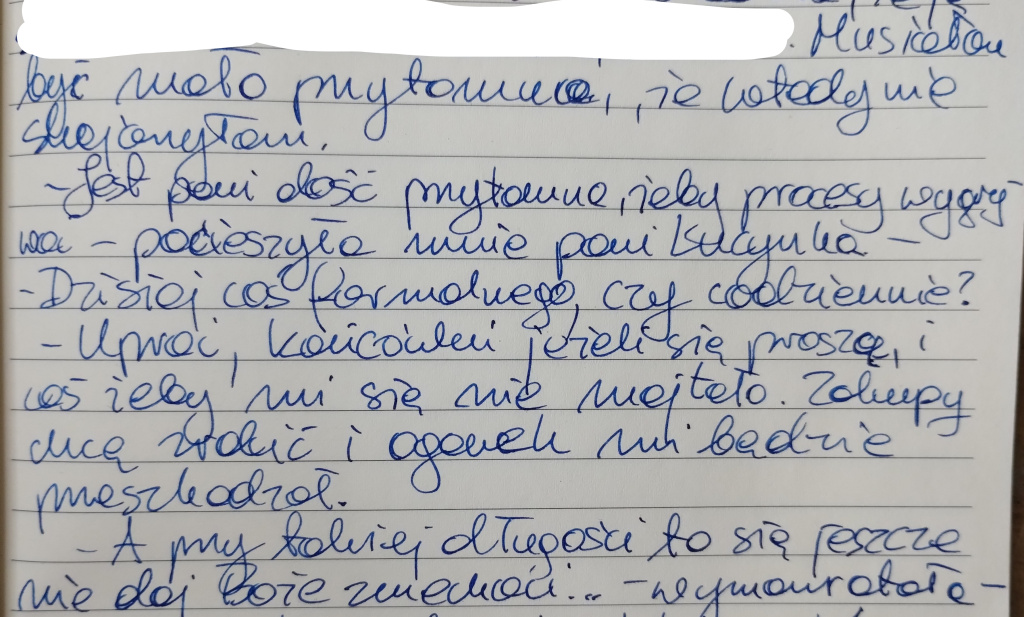 . Musiałam
być mało przytomna, że wtedy nie
skojarzyłam.
- Jest pani dość przytomna, żeby procesy wygry
wać - pocieszyła mnie pani Lucynka -
- Dzisiaj coś formalnego, czy codziennie?
- Uprać, końcówki jeżeli się proszą, i
coś żeby mi się nie majtało. Zakupy
chcę zrobić i ogonek mi będzie
przeszkadzał.
- A przy takiej długości to się jeszcze
nie daj Boże zmechaci... - wymamrotała -